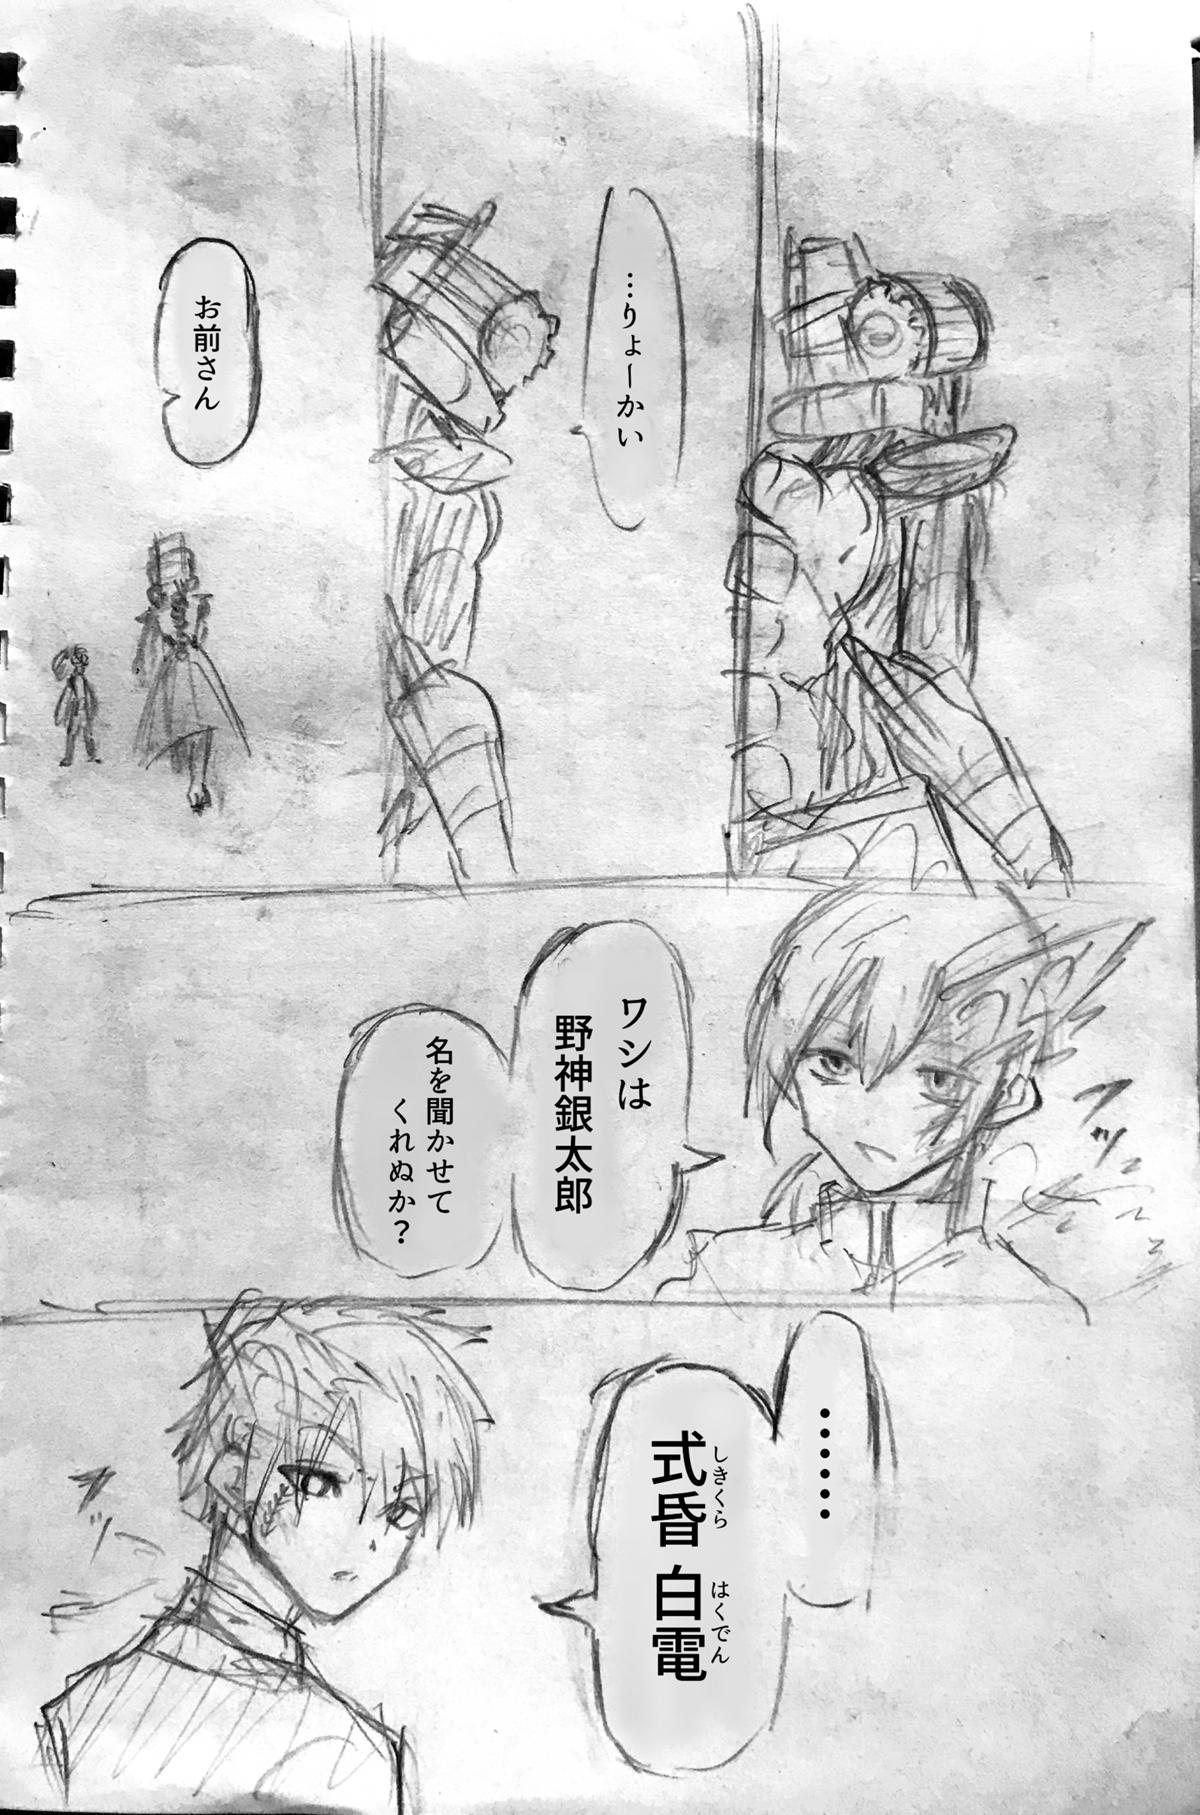 …りょーかい
お前さん
ワシは
野神銀太郎
名を聞かせて
くれぬか?
……
式昏 白電
しきくら はくでん